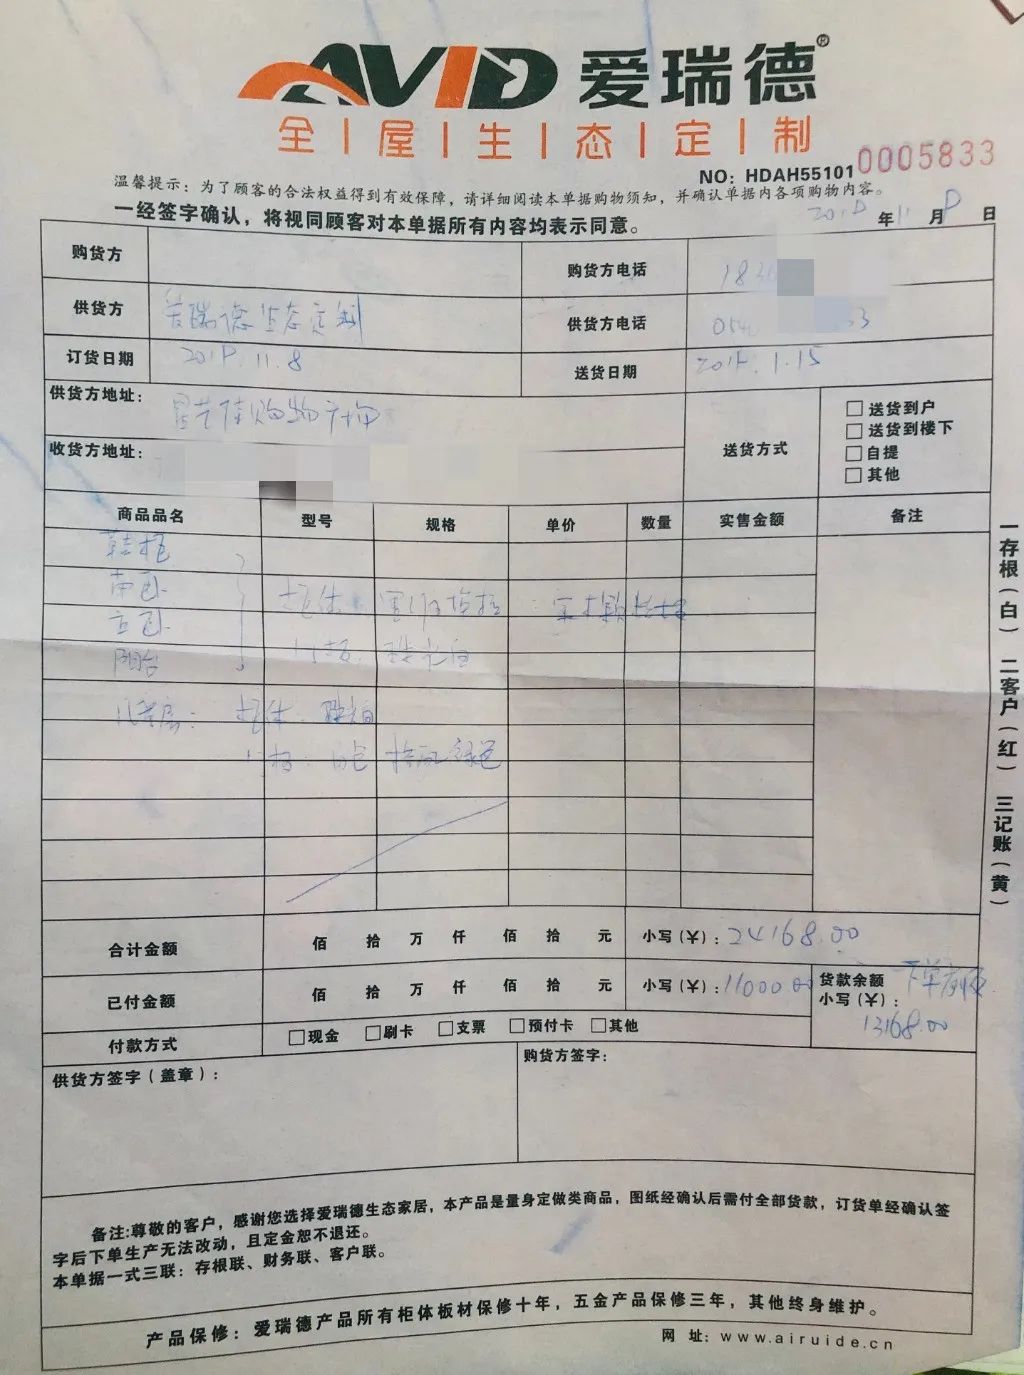 AVID 爱瑞德®
全|屋|生|态|定|制
NO: HDAH55101 0005833
温馨提示：为了顾客的合法权益得到有效保障，请详细阅读本单据购物须知，并确认单据内各项购物内容。
一经签字确认，将视同顾客对本单据所有内容均表示同意。
年 11 月 8 日
购货方 购货方电话 18
供货方 爱瑞德生态定制 供货方电话
订货日期 11.8 送货日期 1.15
供货方地址： 购物广场
收货方地址：
送货方式
□送货到户
□送货到楼下
□自提
□其他
商品品名 型号 规格 单价 数量 实售金额 备注
鞋柜
南卧 柜体
主卧
阳台 门板
柜体
白色 绿色
合计金额 佰 拾 万 仟 佰 拾 元 小写（¥）：24168.00
已付金额 佰 拾 万 仟 佰 拾 元 小写（¥）：11000.00
货款余额 下单
小写（¥）：
13168.00
付款方式 □现金 □刷卡 □支票 □预付卡 □其他
供货方签字（盖章）： 购货方签字：
备注:尊敬的客户，感谢您选择爱瑞德生态家居，本产品是量身定做类商品，图纸经确认后需付全部货款，订货单经确认签
字后下单生产无法改动，且定金恕不退还。
本单据一式三联：存根联、财务联、客户联。
产品保修：爱瑞德产品所有柜体板材保修十年，五金产品保修三年，其他终身维护。
网 址：www.airuide.cn
一存根（白） 二客户（红） 三记账（黄）